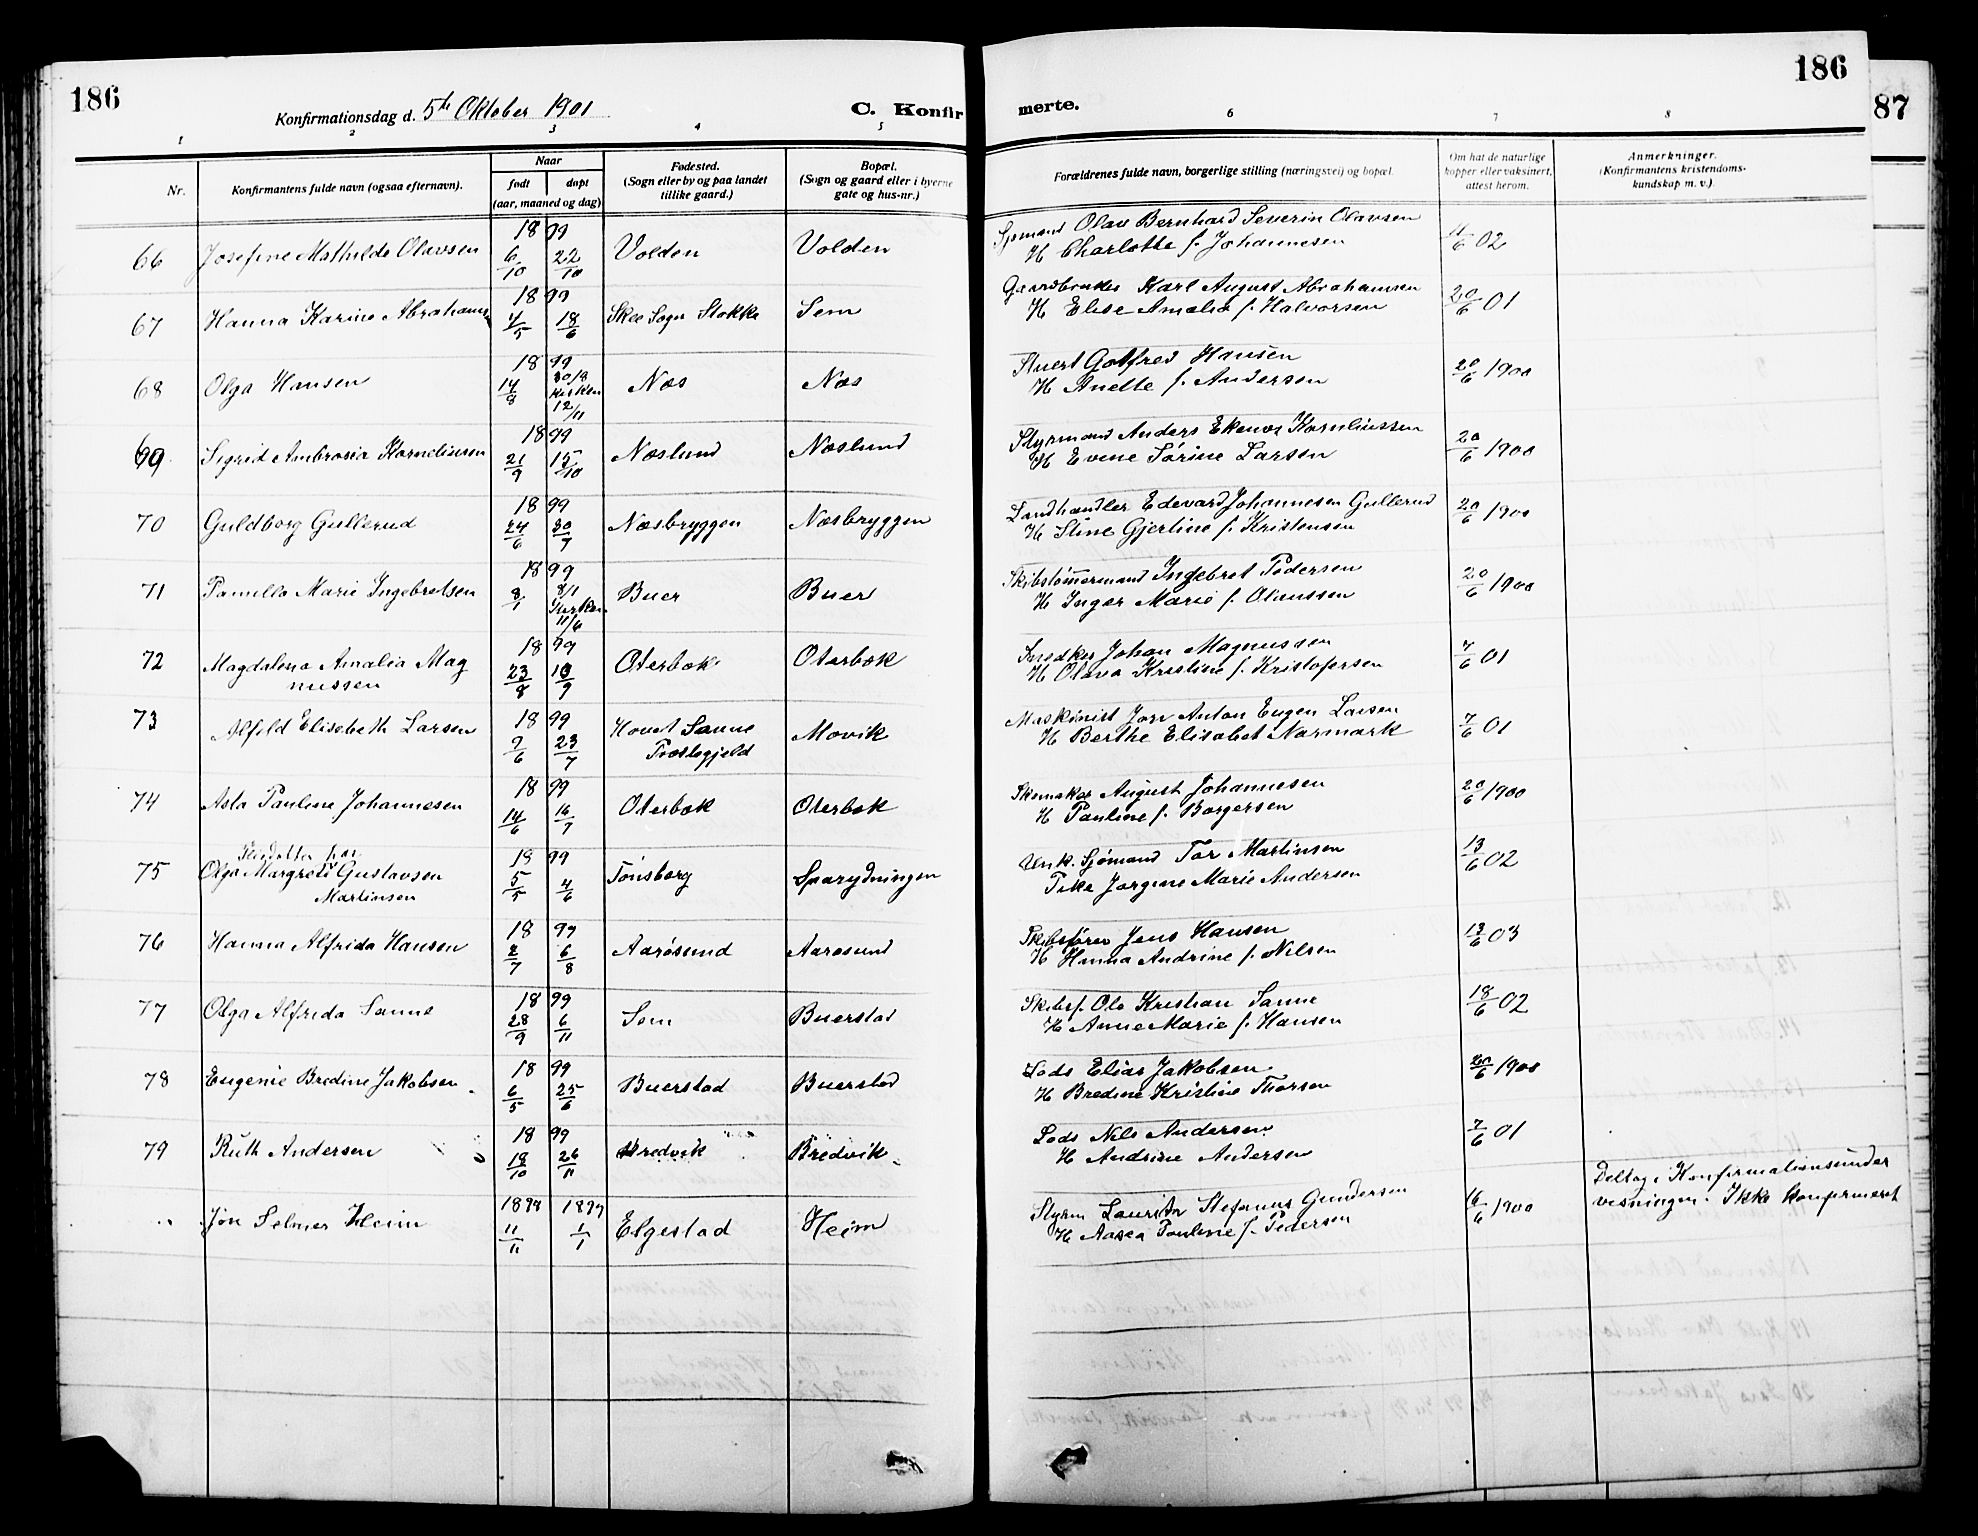 186
Konfirmationsdag d. 5te Oktober 1901
C. Konfir
merte.
186
87
1 2 3 4 5 6 7 8
Nr.
Konfirmantens fulde navn (ogsaa efternavn).
Naar
født døpt
(aar, maaned og dag)
Fødested.
(Sogn eller by og paa landet
tillike gaard.)
Bopæl.
(Sogn og gaard eller i byerne
gate og hus-nr.)
Forældrenes fulde navn, borgerlige stilling (næringsvei) og bopæl.
Om hat de naturlige
kopper eller vaksinert,
attest herom.
Anmerkninger.
(Konfirmantens kristendoms-
kundskap m. v.).
18 99 Sjømand Olav Bernhard Severin Olavsen
66 Josefine Mathilde Olavsen 6/10 22/10 Volden Volden H Charlotte f. Johannesen 11/6 02
18 99 Gaardbruker Karl August Abrahamsen
67 Hanna Karine Abrahams 4/5 18/6 Skee Sogn Stokke Sem H Elise Amalia f. Halvorsen 20/6 01
18 99 Stuert Gotfred Hansen
68 Olga Hansen 14/8 30/8 Kirken 12/11 Næs Næs H Anette f. Andersen 20/6 1900
18 99 Styrmand Anders Kornliussen
69 Sigrid Ambrosia Korneliusen 21/9 15/10 Næslund Næslund H Evine Sørine Larsen 20/6 1900
18 99 Landhandler Edevard Johannesen Gullerud
70 Guldborg Gullerud 24/6 30/7 Næsbryggen Næsbryggen H Stine Gjerline f. Kristensen 20/6 1900
18 99 Skibstømmermand Ingebret Pedersen
71 Pamella Marie Ingebretsen 8/1 8/1 Kirken 11/6 Buer Buer H Inger Marie f. Olaussen 20/6 1900
18 99 Snedker Johan Magnussen
72 Magdalena Amalia Mag 23/8 10/9 Oterbæk Oterbæk H Olava Kristine f. Kristofersen 7/6 01
nussen
18 99 Maskinist Jørg Anton Eugen Larsen
73 Alfeld Elisebeth Larsen 9/6 23/7 Hovet Sanne Movik H Berthe Elisabet Narmark 7/6 01
18 99 Skomaker August Johannesen
74 Asta Pauline Johannesen 14/6 16/7 Oterbæk Oterbæk H Pauline f. Borgersen 20/6 1900
18 99 Unk. Sjømand Tor Martinsen
75 Olga Margrete Gustavsen 5/5 4/6 Tønsberg Sparydningen Pike Jørgine Marie Andersen 13/6 02
Martinsen
18 99 Skibsfører Jens Hansen
76 Hanna Alfrida Hansen 2/7 6/8 Aarøsund Aarøsund H Hanna Andrine f. Nilsen 13/6 03
18 99 Skibsf. Ole Kristian Sanne
77 Olga Alfrida Sanne 28/9 6/11 Sem Buerstad H Anne Marie f. Hansen 18/6 02
18 99 Lods Elias Jakobsen
78 Eugenie Bredine Jakobsen 6/5 25/6 Buerstad Buerstad H Bredine Kristine Thorsen 20/6 1900
18 99 Lods Nils Andersen
79 Ruth Andersen 18/10 26/11 Bredvik Bredvik H Andrine Andersen 7/6 01
1898 1899 Styrm Lauritz Stefanus Gundersen Deltog i Konfirmationsunder
Jon Selmer Heim 11/11 1/1 Elgestad Heim H Aasea Pauline f. Pedersen 16/6 1900 visningen. Ikke konfirmeret